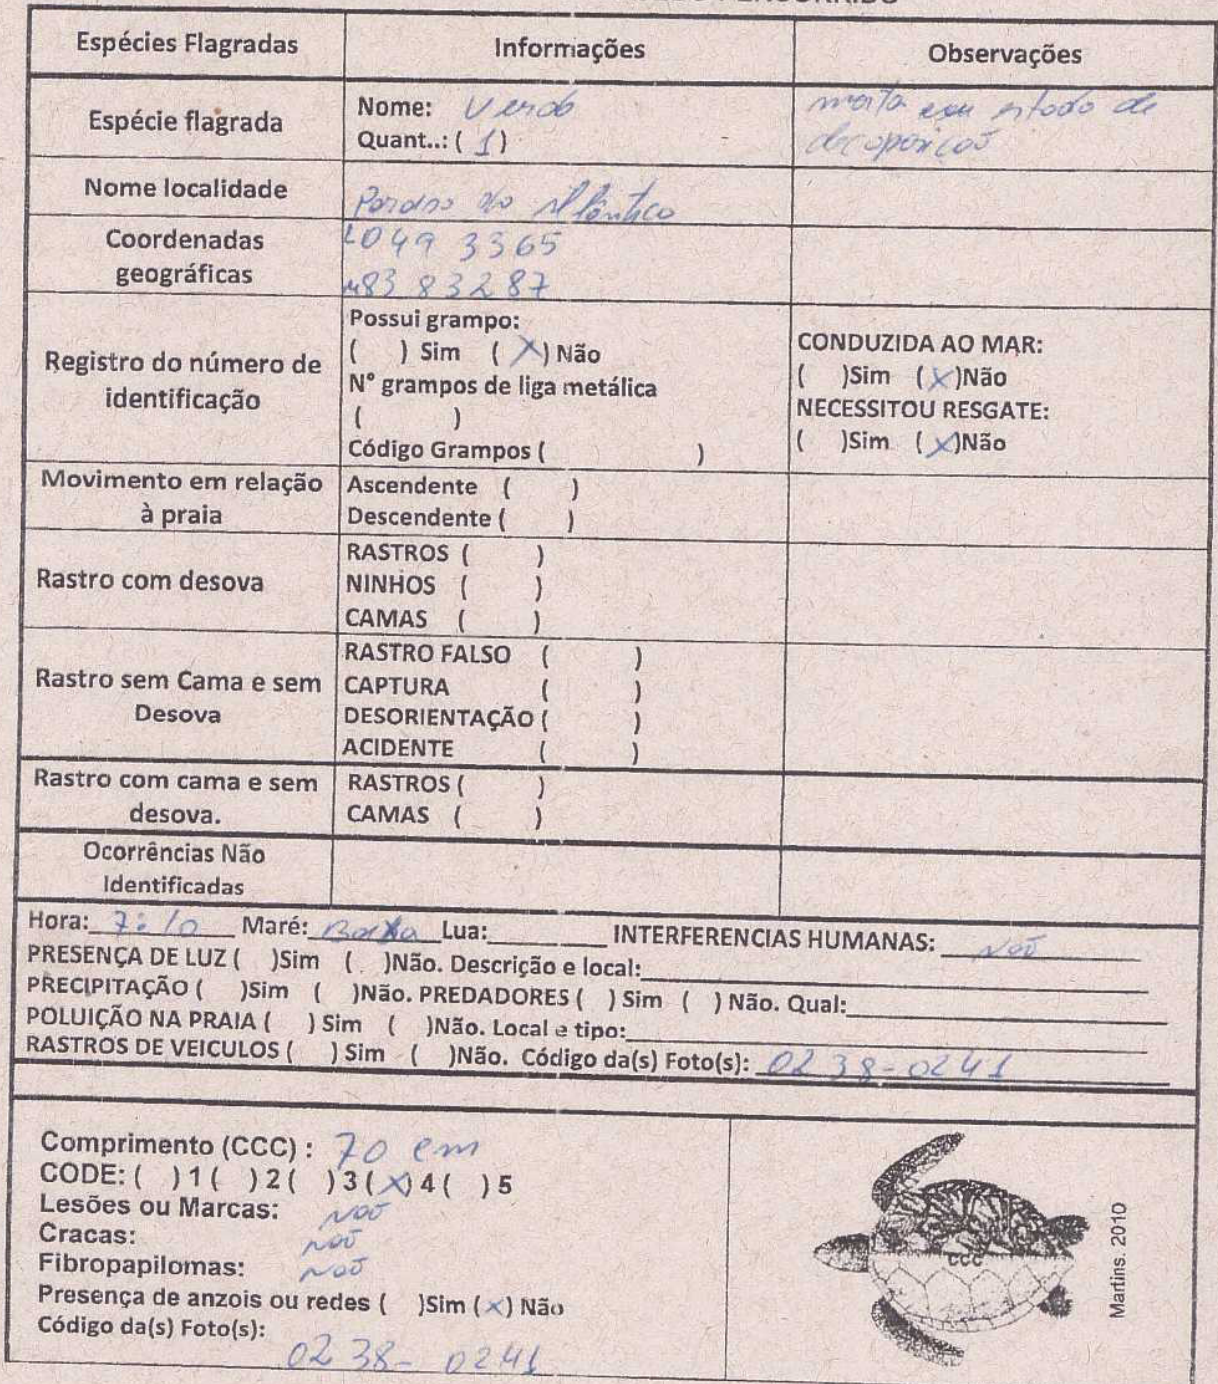 Espécies Flagradas Informações Observações
Espécie flagrada
Nome: Verde
Quant..: ( 1 )
morta em estado de
decoposicoõ
Nome localidade
do Atlântico
Coordenadas
geográficas
L049 3365
83 83287
Registro do número de
identificação
Possui grampo:
( ) Sim ( X ) Não
N° grampos de liga metálica
( )
Código Grampos ( )
CONDUZIDA AO MAR:
( )Sim ( X )Não
NECESSITOU RESGATE:
( )Sim ( X )Não
Movimento em relação
à praia
Ascendente ( )
Descendente ( )
Rastro com desova
RASTROS ( )
NINHOS ( )
CAMAS ( )
Rastro sem Cama e sem
Desova
RASTRO FALSO ( )
CAPTURA ( )
DESORIENTAÇÃO ( )
ACIDENTE ( )
Rastro com cama e sem
desova.
RASTROS ( )
CAMAS ( )
Ocorrências Não
Identificadas
Hora: 7:10 Maré: Baixa Lua: INTERFERENCIAS HUMANAS: Noõ
PRESENÇA DE LUZ ( )Sim ( )Não. Descrição e local:
PRECIPITAÇÃO ( )Sim ( )Não. PREDADORES ( ) Sim ( ) Não. Qual:
POLUIÇÃO NA PRAIA ( ) Sim ( )Não. Local e tipo:
RASTROS DE VEICULOS ( ) Sim ( )Não. Código da(s) Foto(s): 0238-0241
Comprimento (CCC) : 70 cm
CODE: ( ) 1 ( ) 2 ( ) 3 ( X ) 4 ( ) 5
Lesões ou Marcas: Noõ
Cracas: Noõ
Fibropapilomas: Noõ
Presença de anzois ou redes ( )Sim ( X ) Não
Código da(s) Foto(s):
0238- 0241
CCC
Martins. 2010